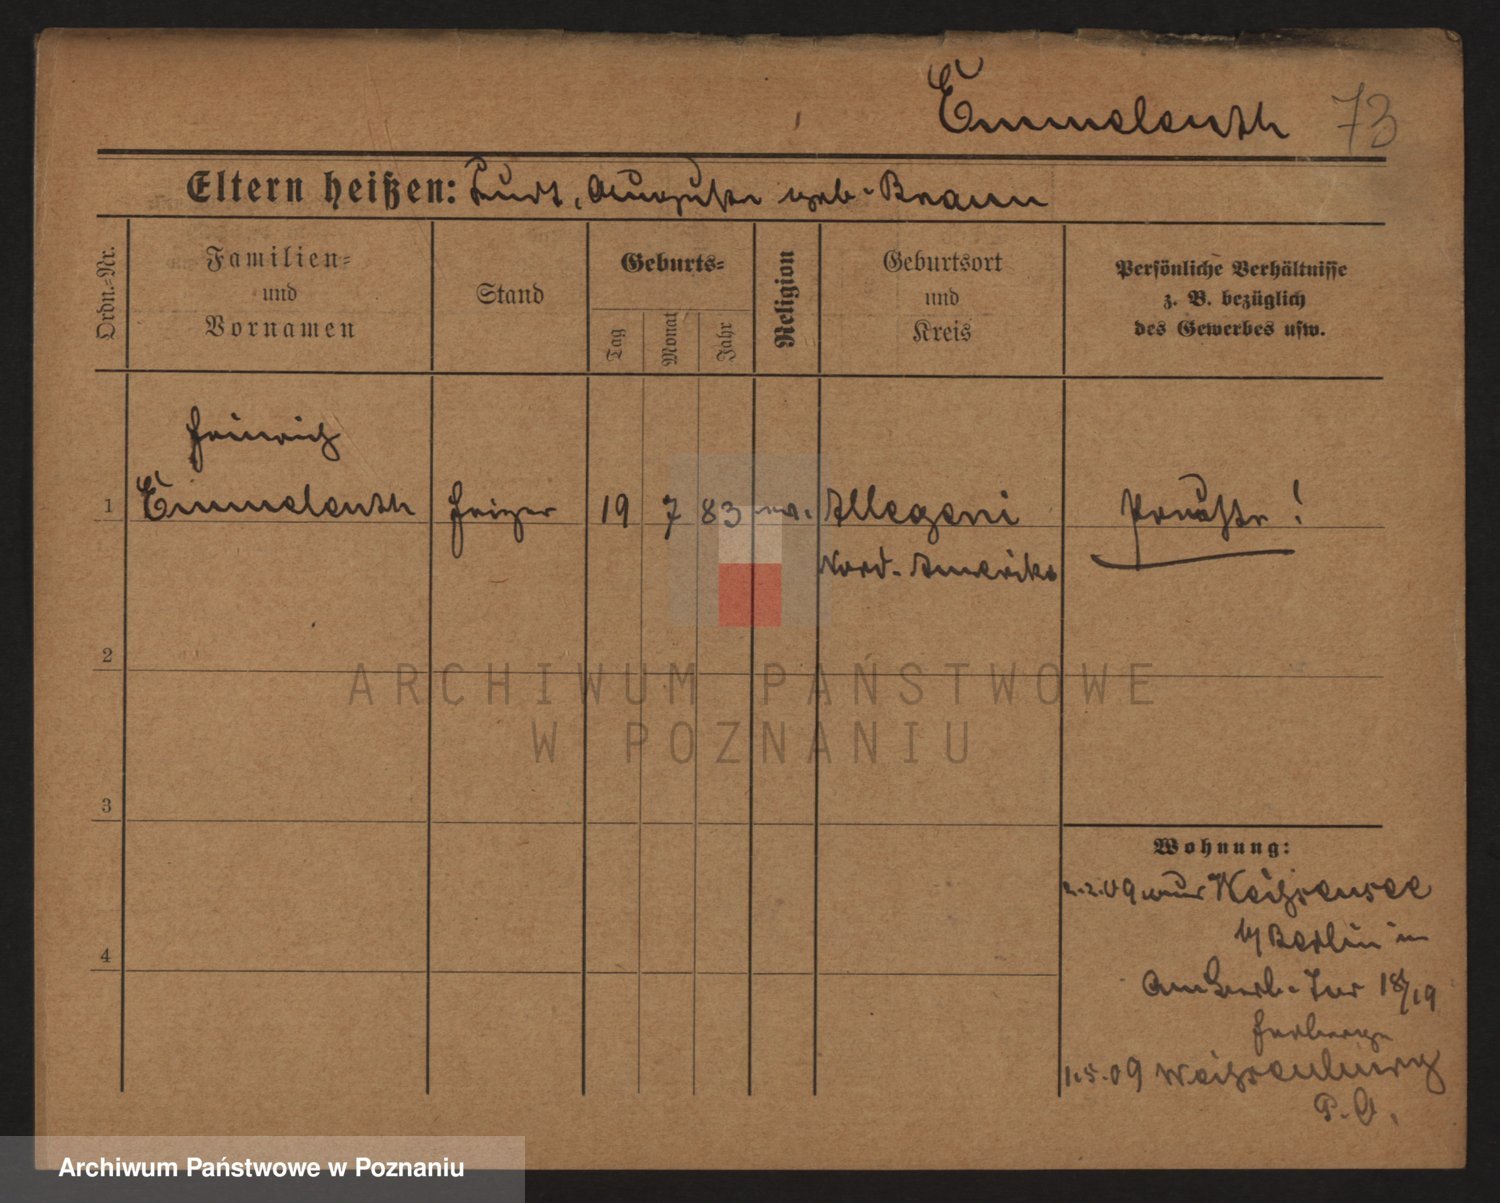 Emmeleuth 73
Eltern heißen: Curt, Auguste geb. Braun
Ordn.-Nr.
Familien-
und
Vornamen
Stand
Geburts-
Tag
Monat
Jahr
Religion
Geburtsort
und
Kreis
Persönliche Verhältnisse
z. B. bezüglich
des Gewerbes usw.
Heinrich
1 Emmeleuth Heizer 19 7 83 ev. Allegeni
Nord-Amerika
2
3
4
Wohnung:
2.2.09 Weißensee
b/ Berlin in
18/19
Herberge
1.5.09 Weißenburg
P. O.
ARCHIWUM PAŃSTWOWE
W POZNANIU
Archiwum Państwowe w Poznaniu